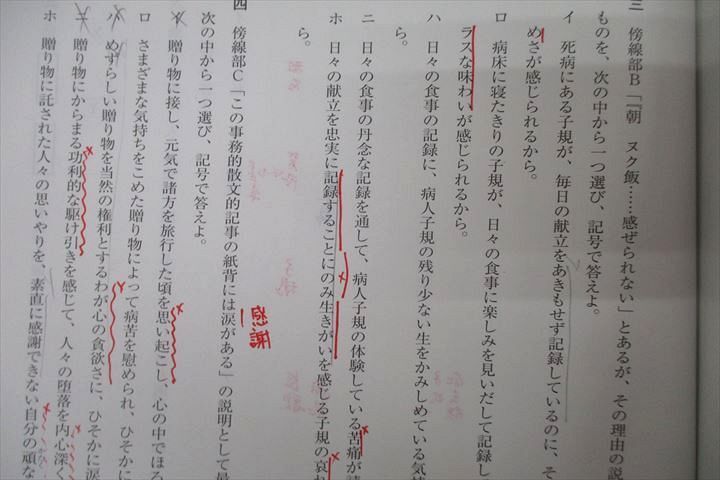 三　傍線部B「『朝　ヌク飯……感ぜられない」とあるが、その理由の説
ものを、次の中から一つ選び、記号で答えよ。
イ　死病にある子規が、毎日の献立をあきもせず記録しているのに、そ
めさが感じられるから。
ロ　病床に寝たきりの子規が、日々の食事に楽しみを見いだして記録し
ラスな味わいが感じられるから。
ハ　日々の食事の記録に、病人子規の残り少ない生をかみしめている気持
ら。
ニ　日々の食事の丹念な記録を通して、病人子規の体験している苦痛が
ホ　日々の献立を忠実に記録することにのみ生きがいを感じる子規の哀れ
ら。
四　傍線部C「この事務的散文的記事の紙背には涙がある」の説明として
次の中から一つ選び、記号で答えよ。
感謝
イ　贈り物に接し、元気で諸方を旅行した頃を思い起こし、心の中でほろ
ロ　さまざまな気持ちをこめた贈り物によって病苦を慰められ、ひそかに
ハ　めずらしい贈り物を当然の権利とするわが心の貪欲さに、ひそかに涙
ニ　贈り物にからまる功利的な駆け引きを感じて、人々の堕落を内心深く
ホ　贈り物に託された人々の思いやりを、素直に感謝できない自分の頑な